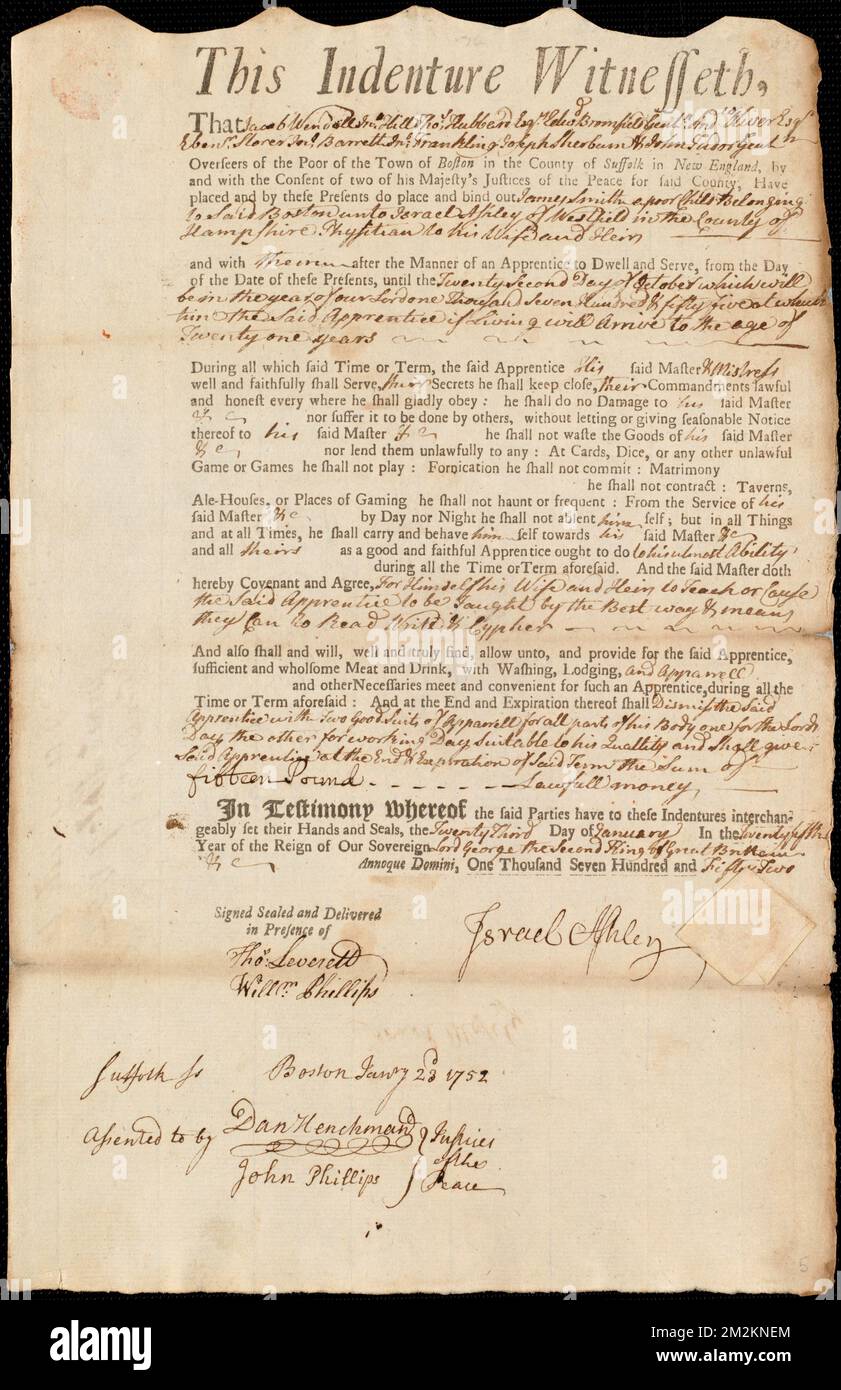 This Indenture Witnesseth,
That Jacob Wendell Jno. Hill Tho. Hubbard Esqr. Edwd. Bromfield Gentn. Andw. Oliver Esqr
Ebenr. Storer Jno. Barrett Jno. Franklin Joseph Sherburn & John Tudor Gent
Overseers of the Poor of the Town of Boston in the County of Suffolk in New England, by
and with the Consent of two of his Majesty's Justices of the Peace for said County, Have
placed and by these Presents do place and bind out James Smith a poor Child Belonging
to Said Boston unto Israel Ashley of Westfield in the County of
Hampshire Physitian to his Wife and Heirs
and with them after the Manner of an Apprentice to Dwell and Serve, from the Day
of the Date of these Presents, until the Twenty Second Day of October which will
be in the year of our Lord one Thousand Seven Hundred & fifty five at which
time the Said Apprentice if Living will Arrive to the age of
Twenty one years
During all which said Time or Term, the said Apprentice His said Master & Mistress
well and faithfully shall Serve, their Secrets he shall keep close, their Commandments lawful
and honest every where he shall gladly obey: he shall do no Damage to his said Master
&c nor suffer it to be done by others, without letting or giving seasonable Notice
thereof to his said Master &c he shall not waste the Goods of his said Master
&c nor lend them unlawfully to any: At Cards, Dice, or any other unlawful
Game or Games he shall not play: Fornication he shall not commit: Matrimony
he shall not contract: Taverns,
Ale-Houses, or Places of Gaming he shall not haunt or frequent: From the Service of his
said Master &c by Day nor Night he shall not absent him self; but in all Things
and at all Times, he shall carry and behave him self towards his said Master &c
and all theirs as a good and faithful Apprentice ought to do to his utmost Ability,
during all the Time or Term aforesaid. And the said Master doth
hereby Covenant and Agree, For Himself his Wife and Heirs to Teach or Cause
the Said Apprentice to be Taught by the Best way & means
they Can to Read Write & Cypher
And also shall and will, well and truly find, allow unto, and provide for the said Apprentice,
sufficient and wholsome Meat and Drink, with Washing, Lodging, and Apparrell
and other Necessaries meet and convenient for such an Apprentice, during all the
Time or Term aforesaid: And at the End and Expiration thereof shall Dismiss the Said
Apprentice with two Good Suits of Apparrell for all parts of his Body one for the Lords
Day the other for working Days Suitable to his Quallity and Shall give
Said Apprentice at the End & Expiration of Said Term the Sum of
fifteen Pound - - - - - - Lawfull money,
In Testimony whereof the said Parties have to these Indentures interchan-
geably set their Hands and Seals, the Twenty Third Day of January In the twenty fifth
Year of the Reign of Our Sovereign Lord George the Second King of Great Brittain
&c Annoque Domini, One Thousand Seven Hundred and Fifty Two
Signed Sealed and Delivered
in Presence of
Israel Ashley
Tho. Leverett
Willm. Phillips
Suffolk ss Boston Janry 23d 1752
Assented to by Dan Henchman } Justices
of the
John Phillips } Peace
5
alamy
Image ID: 2M2KNEM
www.alamy.com